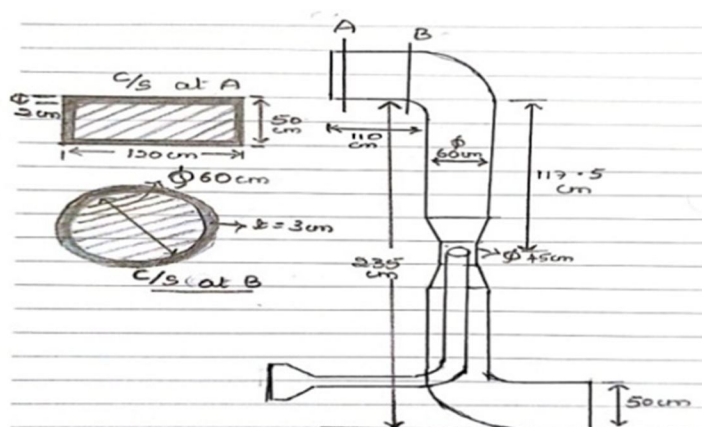 A
B
C/S at A
2 cm
50
cm
130cm
ϕ60cm
t=3cm
C/S at B
110
cm
ϕ
60cm
117.5
cm
235
cm
ϕ 45cm
50cm